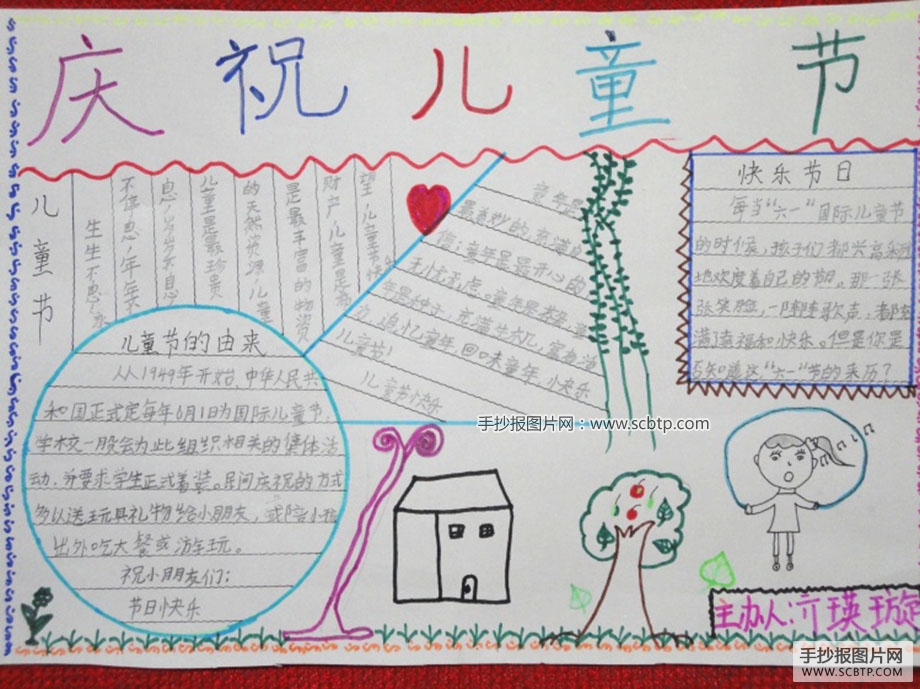 庆祝儿童节
儿童节
生生不息,永
不停息,年年不
息,岁岁不息
儿童是最珍贵
的天然资源,儿童
是最丰富的物资
财产,儿童是希
望,儿童
童年是
最美妙的,充满
悔;童年是最开心的
无忧无虑。童年是
年是种子,充满生机,富有活
力,追忆童年,回味童年,快乐
儿童节!
儿童节快乐
快乐节日
每当“六一”国际儿童节
的时候,孩子们都兴高采烈
地欢度着自己的节日。那一张
张笑脸,一阵阵歌声,都
满了幸福和快乐。但是你是
否知道这“六一”节的来历?
儿童节的由来
从1949年开始,中华人民共
和国正式定每年6月1为国际儿童节,
学校一般会为此组织相关的集体活
动,并要求学生正式着装。民间庆祝的方式
多以送玩具礼物给小朋友,或陪小孩
出外吃大餐或游玩。
祝小朋友们:
节日快乐
手抄报图片网:www.scbtp.com
主办人:亓瑛璇
手抄报图片网
WWW.SCBTP.COM